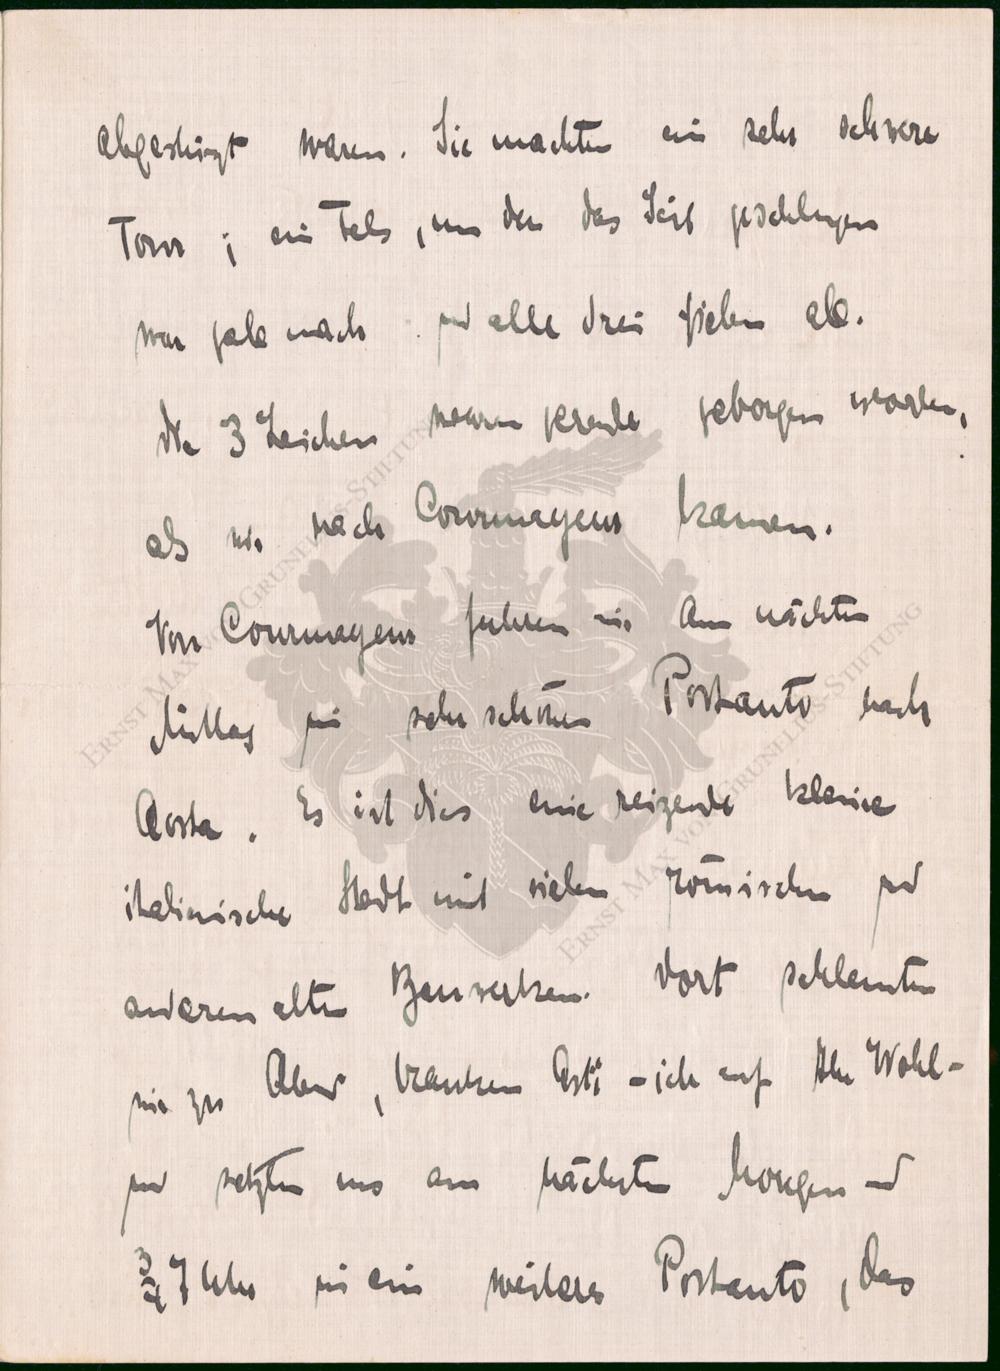 abgestürzt waren. Sie machten ein sehr schwere
Tour; ein Fels, um den das Seil geschlungen
war gab nach und alle drei fielen ab.
Die 3 Leichen waren gerade geborgen worden,
als wir nach Courmayeur kamen.
Von Courmayeur fuhren wir am nächsten
Mittag im sehr schönen Postauto nach
Aosta. Es ist dies eine reizende kleine
italienische Stadt mit vielen römischen und
anderen alten Bauwerken. Dort schlemmten
wir zu Abend, tranken Asti - ich auf Ihr Wohl -
und setzten uns am nächsten Morgen um
3/4 7 Uhr in ein weiteres Postauto, das
ERNST MAX VON GRUNELIUS-STIFTUNG
ERNST MAX VON GRUNELIUS-STIFTUNG